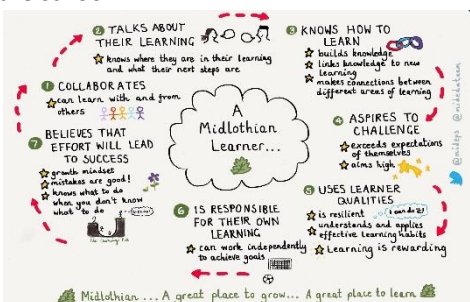 A
Midlothian
Learner...
1 COLLABORATES
can learn with and from
others
2 TALKS ABOUT
THEIR LEARNING
knows where they are in their learning
and what their next steps are
3 KNOWS HOW TO
LEARN
builds knowledge
links knowledge to new
learning
makes connections between
different areas of learning
4 ASPIRES TO
CHALLENGE
exceeds expectations
of themselves
aims high
5 USES LEARNER
QUALITIES
is resilient
I can do it!
understands and applies
effective learning habits
Learning is rewarding
6 IS RESPONSIBLE
FOR THEIR OWN
LEARNING
can work independently
to achieve goals
7 BELIEVES THAT
EFFORT WILL LEAD
TO SUCCESS
growth mindset
mistakes are good!
knows what to do
when you don't know
what to do
The Learning Pit
@mideps
Midlothian ... A great place to grow... A great place to learn